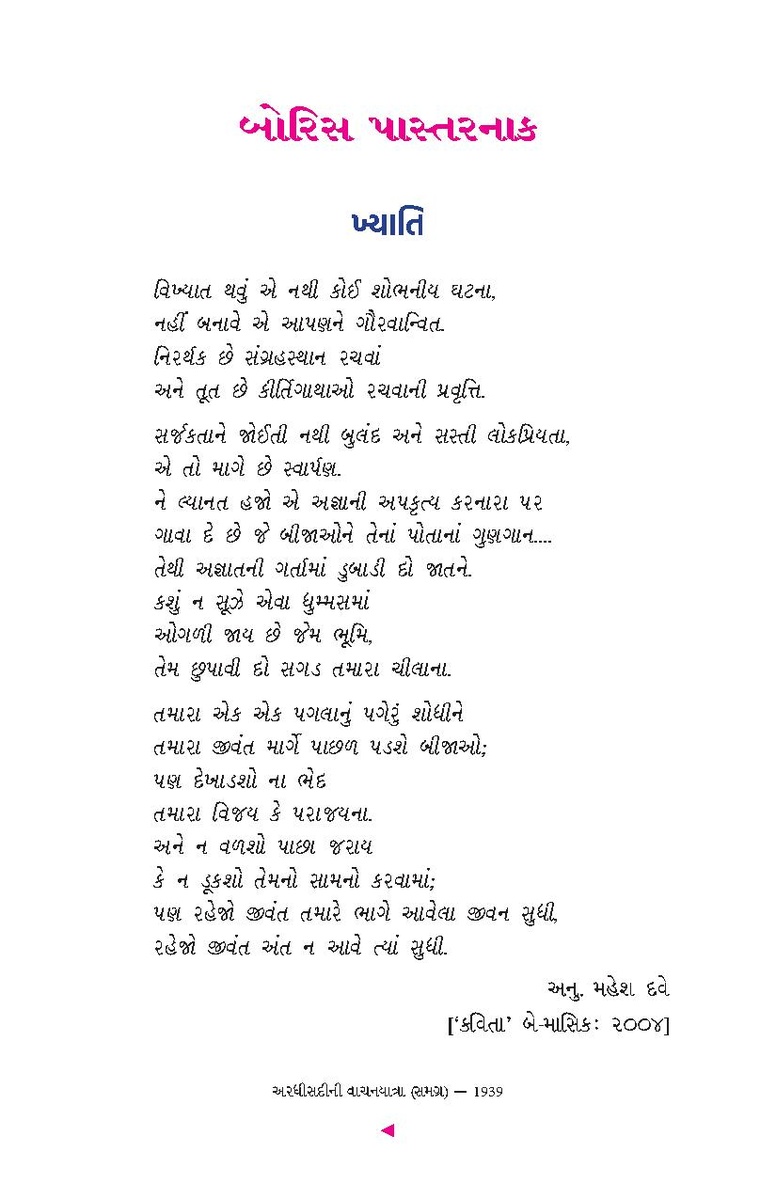 બોરિસ પાસ્તરનાક
ખ્યાતિ
વિખ્યાત થવું એ નથી કોઈ શોભનીય ઘટના,
નહીં બનાવે એ આપણને ગૌરવાન્વિત.
નિરર્થક છે સંગ્રહસ્થાન રચવાં
અને તૂત છે કીર્તિગાથાઓ રચવાની પ્રવૃત્તિ.
સર્જકતાને જોઈતી નથી બુલંદ અને સસ્તી લોકપ્રિયતા,
એ તો માગે છે સ્વાર્પણ.
ને લ્યાનત હજો એ અજ્ઞાની અપકૃત્ય કરનારા પર
ગાવા દે છે જે બીજાઓને તેનાં પોતાનાં ગુણગાન....
તેથી અજ્ઞાતની ગર્તામાં ડુબાડી દો જાતને.
કશું ન સૂઝે એવા ધુમ્મસમાં
ઓગળી જાય છે જેમ ભૂમિ,
તેમ છુપાવી દો સગડ તમારા ચીલાના.
તમારા એક એક પગલાનું પગેરું શોધીને
તમારા જીવંત માર્ગે પાછળ પડશે બીજાઓ;
પણ દેખાડશો ના ભેદ
તમારા વિજય કે પરાજયના.
અને ન વળશો પાછા જરાય
કે ન ડૂકશો તેમનો સામનો કરવામાં;
પણ રહેજો જીવંત તમારે ભાગે આવેલા જીવન સુધી,
રહેજો જીવંત અંત ન આવે ત્યાં સુધી.
અનુ. મહેશ દવે
[‘કવિતા’ બે-માસિક: ૨૦૦૪]
અરધીસદીની વાચનયાત્રા (સમગ્ર) — 1939